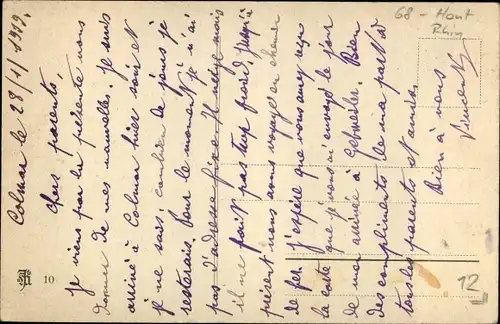 Colmar le 28/1/1919.
Chers parents,
Je viens par la présente vous
donner de mes nouvelles. Je suis
arrivé à Colmar hier soir et
je ne sais combien de jours je
resterais. Pour le moment je n'ai
pas d'adresse fixe. Il neige mais
il ne fait pas trop froid, jusqu'à
présent nous avons voyagé en chemin
de fer. J'espère que vous aurez reçu
la carte que je vous ai envoyé le jour
de mon arrivée à Gebweiler. Bien
des compliments de ma part à
tous les parents et amies.
Bien à vous
Vincent
68 - Haut
Rhin
10
12